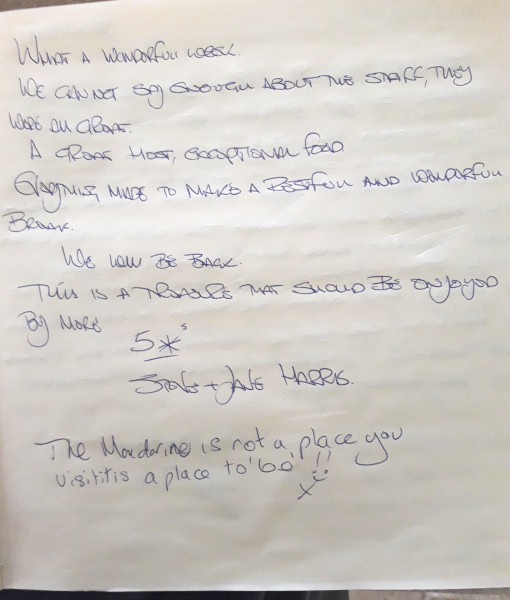 WHAT A WONDERFUL WEEK.
WE CAN NOT SAY ENOUGH ABOUT THE STAFF, THEY
WERE ALL GREAT.
A GREAT HOST, EXCEPTIONAL FOOD
EVERYTHING MADE TO MAKE A RESTFUL AND WONDERFUL
BREAK.
WE WILL BE BACK.
THIS IS A TREASURE THAT SHOULD BE ENJOYED
BY MORE
5*s
STEVE + JANE HARRIS.
The Mandarine is not a place you
visit it is a place to 'be' !!
x